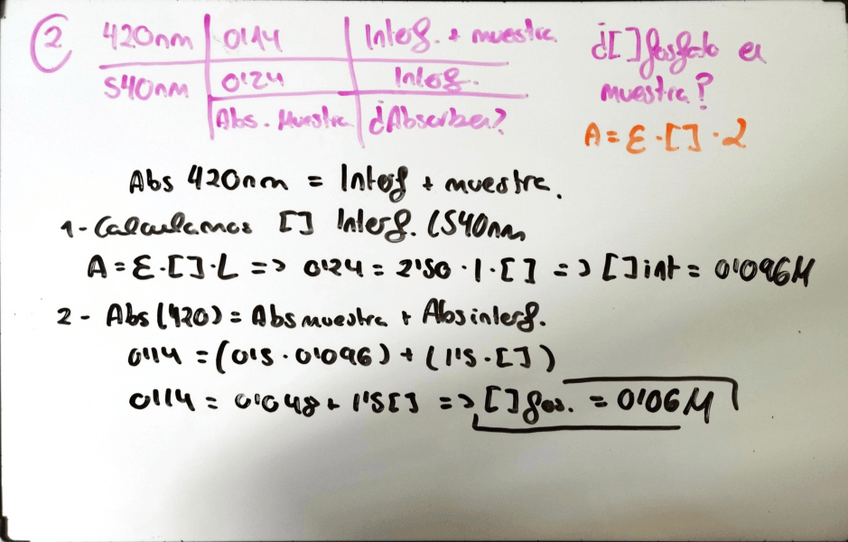 2 420nm 0'14 Interf. + muestra ¿[ ] fosfato en
540nm 0'24 Interf. muestra?
Abs. Muestra ¿Absorben? A = ε · [ ] · l
Abs 420nm = Interf + muestra.
1 - Calculamos [ ] Interf. (540nm
A = ε · [ ] · L => 0'24 = 2'50 · 1 · [ ] => [ ] int = 0'096M
2 - Abs (420) = Abs muestra + Abs interf.
0'14 = (0'5 · 0'096) + (1'5 · [ ])
0'14 = 0'048 + 1'5 [ ] => [ ] fos. = 0'06M